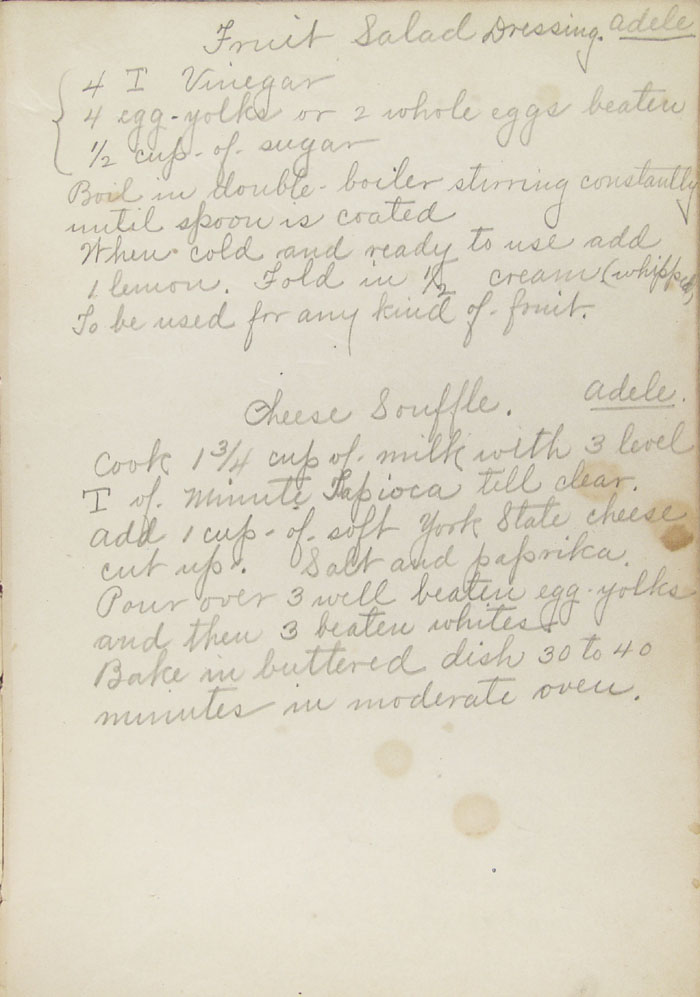 Fruit Salad Dressing. Adele
4 T Vinegar
4 egg-yolks or 2 whole eggs beaten
1/2 cup-of-sugar
Boil in double-boiler stirring constantly
until spoon is coated
When cold and ready to use add
1 lemon. Fold in 1/2 cream (whipped)
To be used for any kind of-fruit.
Cheese Souffle. Adele.
Cook 1 3/4 cup of milk with 3 level
T of Minute Tapioca tell clear.
Add 1 cup-of-soft York State cheese
cut up. Salt and paprika.
Pour over 3 well beaten egg-yolks
and then 3 beaten whites.
Bake in buttered dish 30 to 40
minutes in moderate oven.